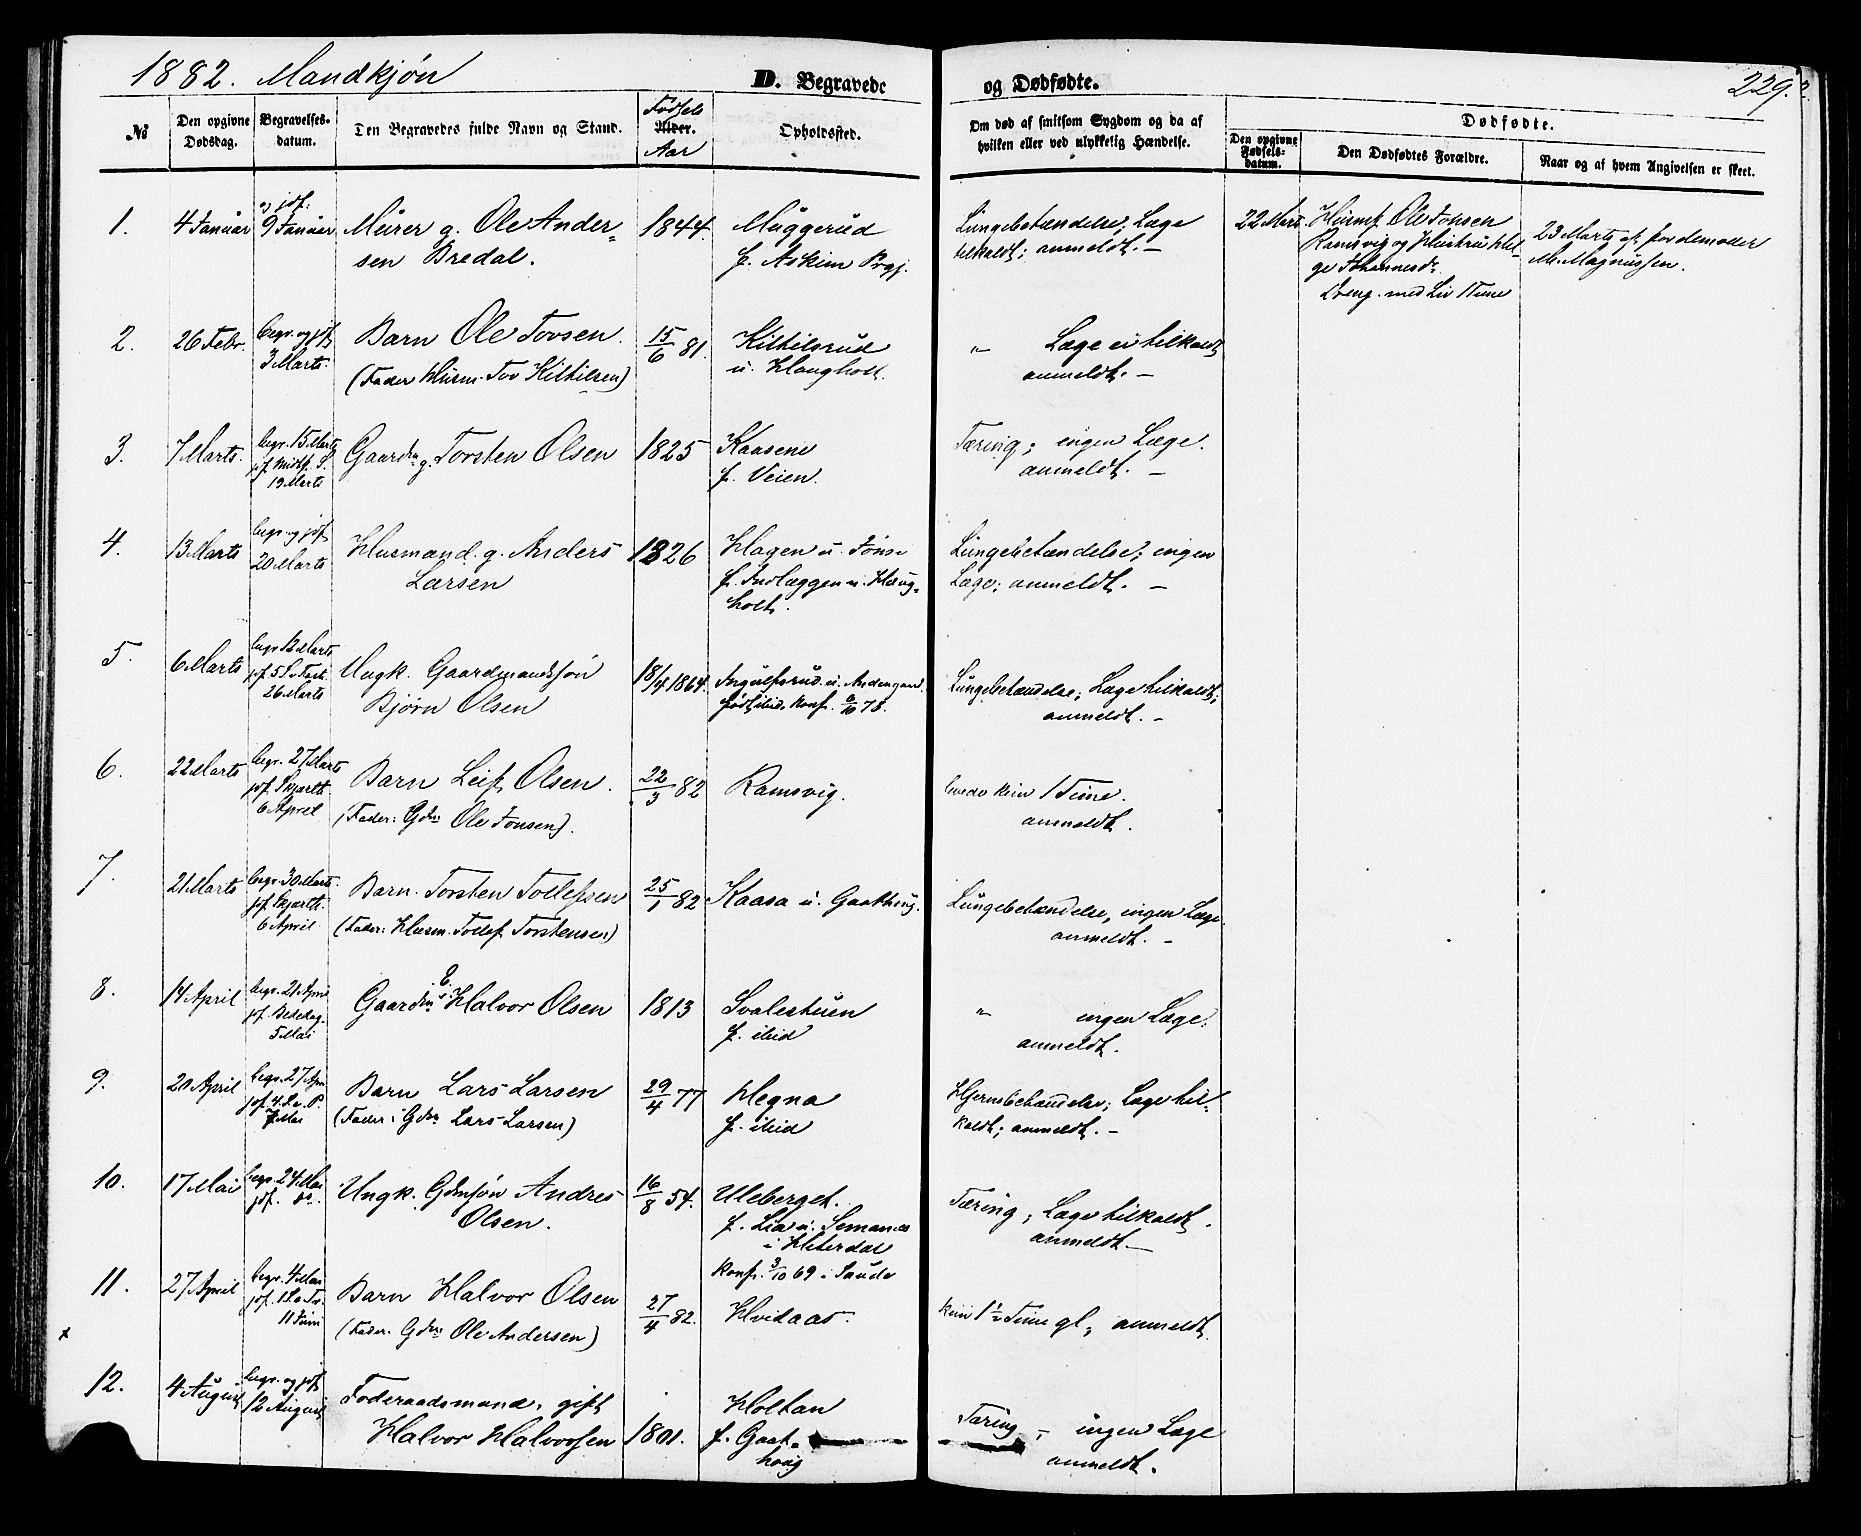 1882. Mandkjøn
D. Begravede og Dødfødte.
229.
No
Den opgivne Dødsdag.
Begravelses-datum.
Den Begravedes fulde Navn og Stand.
Fødsels
Alder.
Aar
Opholdssted.
Om død af smitsom Sygdom og da af
hvilken eller ved ulykkelig Hændelse.
Dødfødte.
Den opgivne Fødsels-datum.
Den Dødfødtes Forældre.
Naar og af hvem Angivelsen er skeet.
1. 4 Januar
og jdf.
9 Januar
Murer g. Ole Ander=
sen Bredal.
1844.
Muggerud
f. Askim Prgj.
Lungebetændelse; Læge
tilkaldt; anmeldt. —
22 Marts
Husm. Ole Jonsen
Ramsvig og Hustru Hel-
ge Johannesdr.
Dreng. med Liv 1 Time
23 Marts af Jordemoder
M. Magnussen.
2. 26 Febr.
begr. og jdf.
3 Marts.
Barn Ole Tovsen.
(Fader Husm. Tov Kittilsen)
15/6 81.
Kittilsrud
u. Haugholt.
" Læge ei tilkaldt
anmeldt. —
3. 7 Marts.
begr. 15 Marts
jdf. Midf. S.
19 Marts
Gaardm. g. Torsten Olsen
1825
Kaasene
f. Veien.
Tæring; ingen Læge.
anmeldt. —
4. 13 Marts
begr. og jdf.
20 Marts
Husmand. g. Anders
Larsen
1826
Hagen u. Jønse
f. Indlæggen u. Haug-
holt.
Lungebetændelse; ingen
Læge; anmeldt. —
5. 6 Marts
begr. 13 Marts
jdf. 5 S. i Fast.
26 Marts
Ungk. Gaardmandssøn
Bjørn Olsen
18/4 1864.
Ingulfsrud u.
født ibid. konf. 78.
Lungebetændelse; Læge tilkaldt;
anmeldt. —
6. 22 Marts
begr. 27 Marts
jdf. Skjærth.
6 April
Barn Leif Olsen.
(Fader: Gdm. Ole Jonsen).
22/3 82
Ramsvig.
levede kun 1 Time.
anmeldt.
7. 21 Marts
begr. 30 Marts.
jdf. Skjærth.
6 April
Barn. Torsten Tollefsen
(Fader: Husm. Tollef Torstensen)
25/1 82
Kaasa u. Gaathaug.
Lungebetændelse, ingen Læge.
anmeldt. —
8. 14 April
begr. 21 April
jdf. Bededag.
5 Mai
Gaardm. E. Halvor Olsen
1813
Svalestuen
f. ibid
" ingen Læge;
anmeldt.
9. 20 April
begr. 27 Apr.
jdf. 4. S. e. P.
7 Mai
Barn Lars Larsen
(Fader: Gdm. Lars Larsen)
29/4 77
Hegna
f. ibid
Hjernebetændelse; Læge til-
kaldt; anmeldt. —
10. 17 Mai
begr. 24 Mai
jdf. do.
Ungk. Gdmsøn Andres
Olsen.
16/8 54.
Uleberget.
f. Lia u. Semane
i Hiterdal
konf. 3/10 69 i Saude
Tæring; Læge tilkaldt.
anmeldt. —
11. 27 April
begr. 4 Mai
jdf. 1 S. e. Tr.
11 Juni
Barn Halvor Olsen
(Fader. Gdm. Ole Andersen)
27/4 82.
Hvidaas.
kun 1 ½ Time gl; anmeldt.
12. 4 August
begr. og jdf.
12 August
Foderaadsmand. gift
Halvor Halvorsen
1801.
Holtan
f. Gaat-
houg
Tæring; ingen Læge
anmeldt.